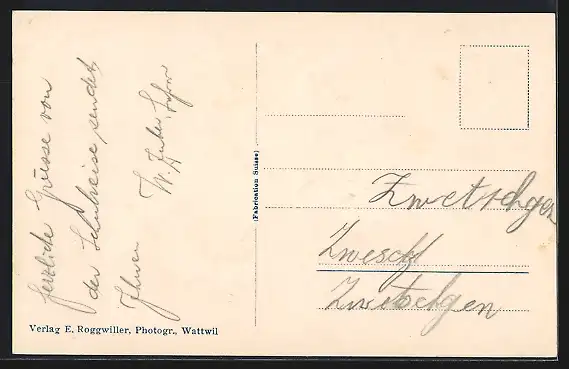 Herzliche Grüsse von
der Schulreise sendet
Ihnen
W. Huber, Lehrer
(Fabrication Suisse)
Zwetschgen
Zwesch
Zwetschgen
Verlag E. Roggwiller, Photogr., Wattwil